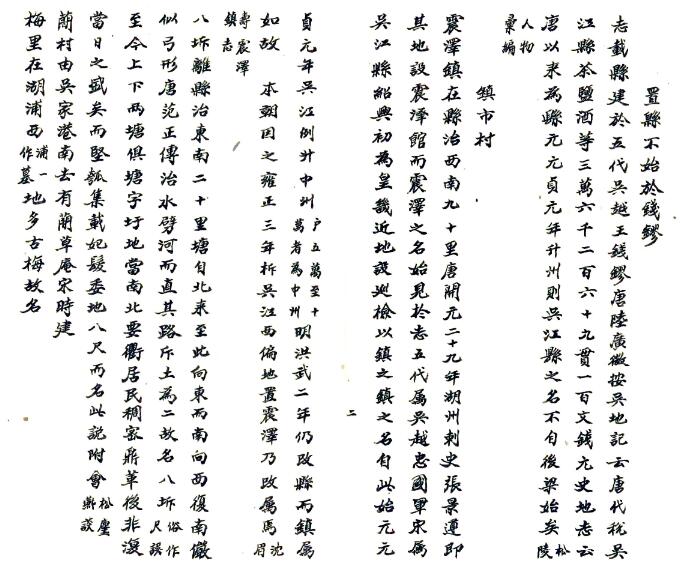 置縣不始於錢鏐
志載縣建於五代吳越王錢鏐唐陸廣微按吳地記云唐代稅吳
江縣茶鹽酒等三萬六千二百六十九貫一百文錢尢史地志云
唐以来為縣元元貞元年升州則吳江縣之名不自後梁始矣松陵
人物彙編
鎮市村
震澤鎮在縣治西南九十里唐開元二十九年湖州刺史張景遵即
其地設震澤館而震澤之名始見於志五代属吳越忠國軍宋属
吳江縣紹興初為皇畿近地設巡檢以鎮之鎮之名自此始元元
貞元年吳江例升中州户五萬至十萬者為中州明洪武二年仍改縣而鎮属
如故 本朝因之雍正三年析吳江西偏地置震澤乃改属焉沈眉
壽震澤鎮志
八坼離縣治東南二十里塘自北来至此向東而南向西復南儼
似弓形唐范正傳治水劈河而直其路斥土為二故名八坼俗作尺誤
至今上下两塘俱塘字圩地當南北要衢居民稠密鼎革後非復
當日之盛矣而堅瓠集載妃髮委地八尺而名此說附會松麈燕談
藺村由吳家港南去有藺草庵宋時建
梅里在湖浦西浦一作墓地多古梅故名
二